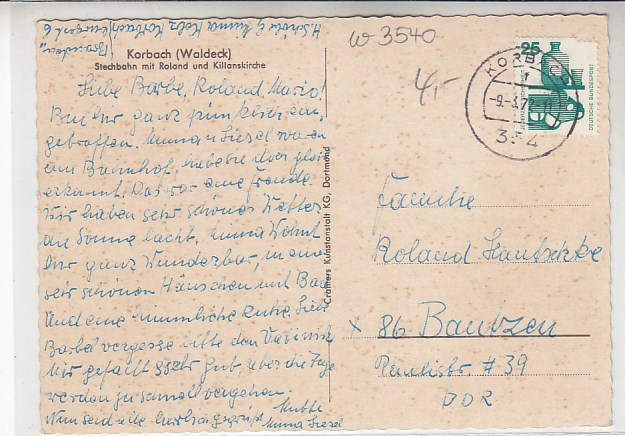 H. Schöle b/ Emma Kolz Korbach
Korbach (Waldeck)
Stechbahn mit Roland und Kilianskirche
Liebe Barbe, Roland, Mario!
Bin hir ganz pünktlich ein,
getroffen. Emma u Liesel waren
am Bahnhof, habe sie doch gleich
erkannt. Das war eine Freude.
Wir haben sehr schönes Wetter
die Sonne lacht. Emma Wohnt
hir ganz Wunderbar, in einem
sehr schönen Häuschen mit Bad
Und eine himmliche Ruhe. Liebe
Barbel vergesse bitte den
Mir gefällt sehr gut, aber die Tage
werden zu schnell vergehen.
Nun seid alle herzlich gegrüßt Mutti
Emma Liesel
Cramers Kunstanstalt KG, Dortmund
W 3540
4,-
25
DEUTSCHE BUNDESPOST
KORBACH
-9.-3.72
354
Familie
Roland
x 86 Bautzen
Paulistr. # 39
DDR